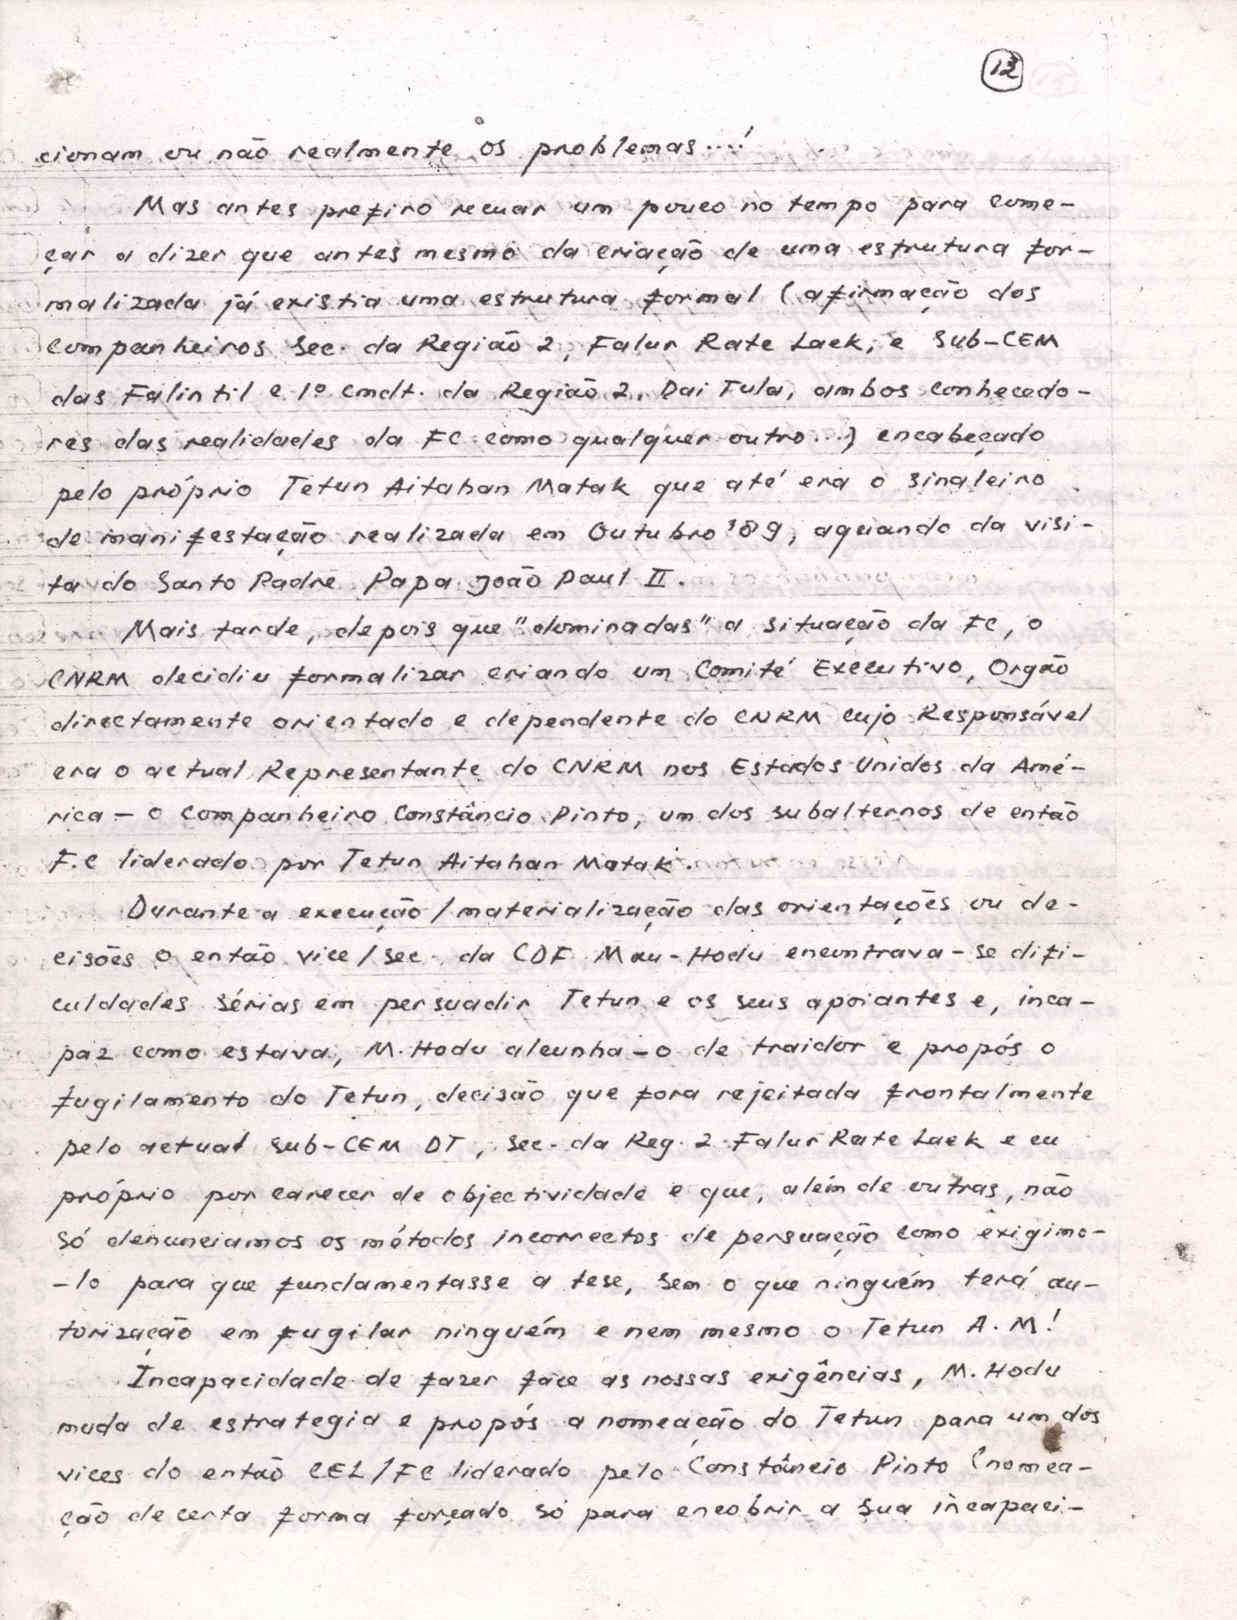 12
cionam ou não realmente os problemas...!
Mas antes prefiro recuar um pouco no tempo para come-
çar a dizer que antes mesmo da criação de uma estrutura for-
malizada já existia uma estrutura formal (afirmação dos
companheiros Sec. da Região 2, Falur Rate Laek, e Sub-CEM
das Falintil e 1º cmdt. da Região 2, Dai Tula, ambos conhecedo-
res das realidades da FC como qualquer outro...) encabeçado
pelo próprio Tetun Aitahan Matak que até era o sinaleiro
de manifestação realizada em Outubro '89, aquando da visi-
ta do Santo Padre Papa João Paul II.
Mais tarde, depois que "dominadas" a situação da FC, o
CNRM decidiu formalizar criando um Comité Executivo, Orgão
directamente orientado e dependente do CNRM cujo Responsável
era o actual Representante do CNRM nos Estados Unidos da Amé-
rica - o companheiro Constâncio Pinto, um dos subalternos de então
F.C liderado por Tetun Aitahan Matak.
Durante a execução/materialização das orientações ou de-
cisões o então vice/sec. da CDF Mau-Hodu encontrava-se difi-
culdades sérias em persuadir Tetun e os seus apoiantes e, inca-
paz como estava, M. Hodu alcunha-o de traidor e propós o
fugilamento do Tetun, decisão que fora rejeitada frontalmente
pelo actual Sub-CEM DT, Sec. da Reg. 2 Falur Rate Laek e eu
próprio por carecer de objectividade e que, além de outras, não
só denunciamos os métodos incorrectos de persuação como exigimo-
-lo para que fundamentasse a tese, sem o que ninguém terá au-
torização em fugilar ninguém e nem mesmo o Tetun A.M!
Incapacidade de fazer face as nossas exigências, M. Hodu
muda de estrategia e propós a nomeação do Tetun para um dos
vices do então CEL/FC liderado pelo Constâncio Pinto (nomea-
ção de certa forma forçado só para encobrir a sua incapaci-